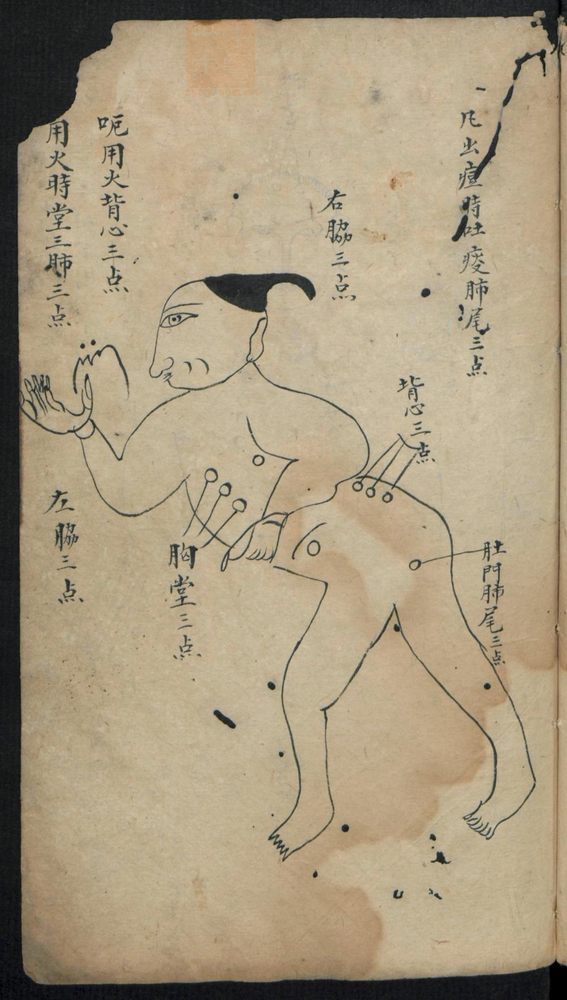 一凡出痘時吐痰肺尾三点
右脇三点
背心三点
肚門肺尾三点
呃用火背心三点
用火時堂三肺三点
胸堂三点
左脇三点